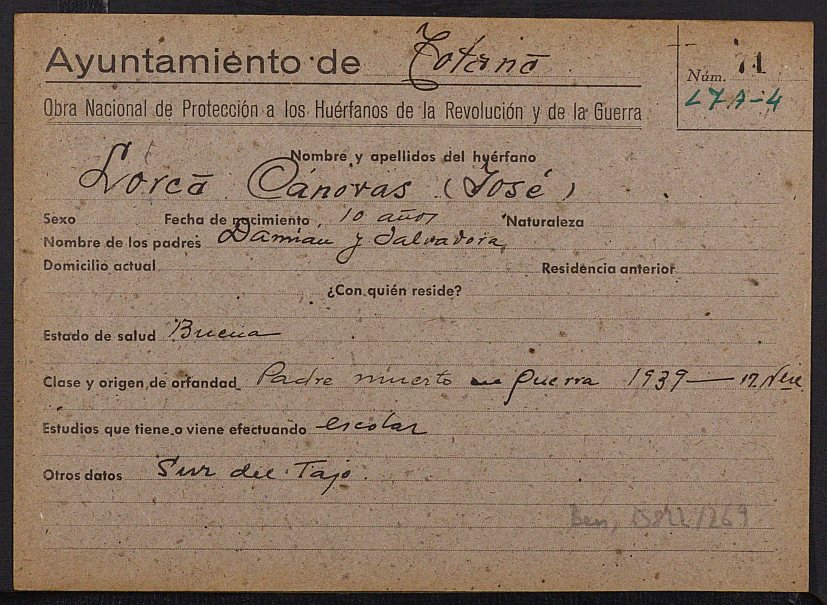 Ayuntamiento de Totana
Núm. 71
L7A-4
Obra Nacional de Protección a los Huérfanos de la Revolución y de la Guerra
Nombre y apellidos del huérfano
Lorca Cánovas (José)
Sexo Fecha de nacimiento 10 años Naturaleza
Nombre de los padres Damian y Salvadora
Domicilio actual Residencia anterior
¿Con quién reside?
Estado de salud Buena
Clase y origen de orfandad Padre muerto en guerra 1939 — 12
Estudios que tiene o viene efectuando escolar
Otros datos Sur del Tajo
Ben,